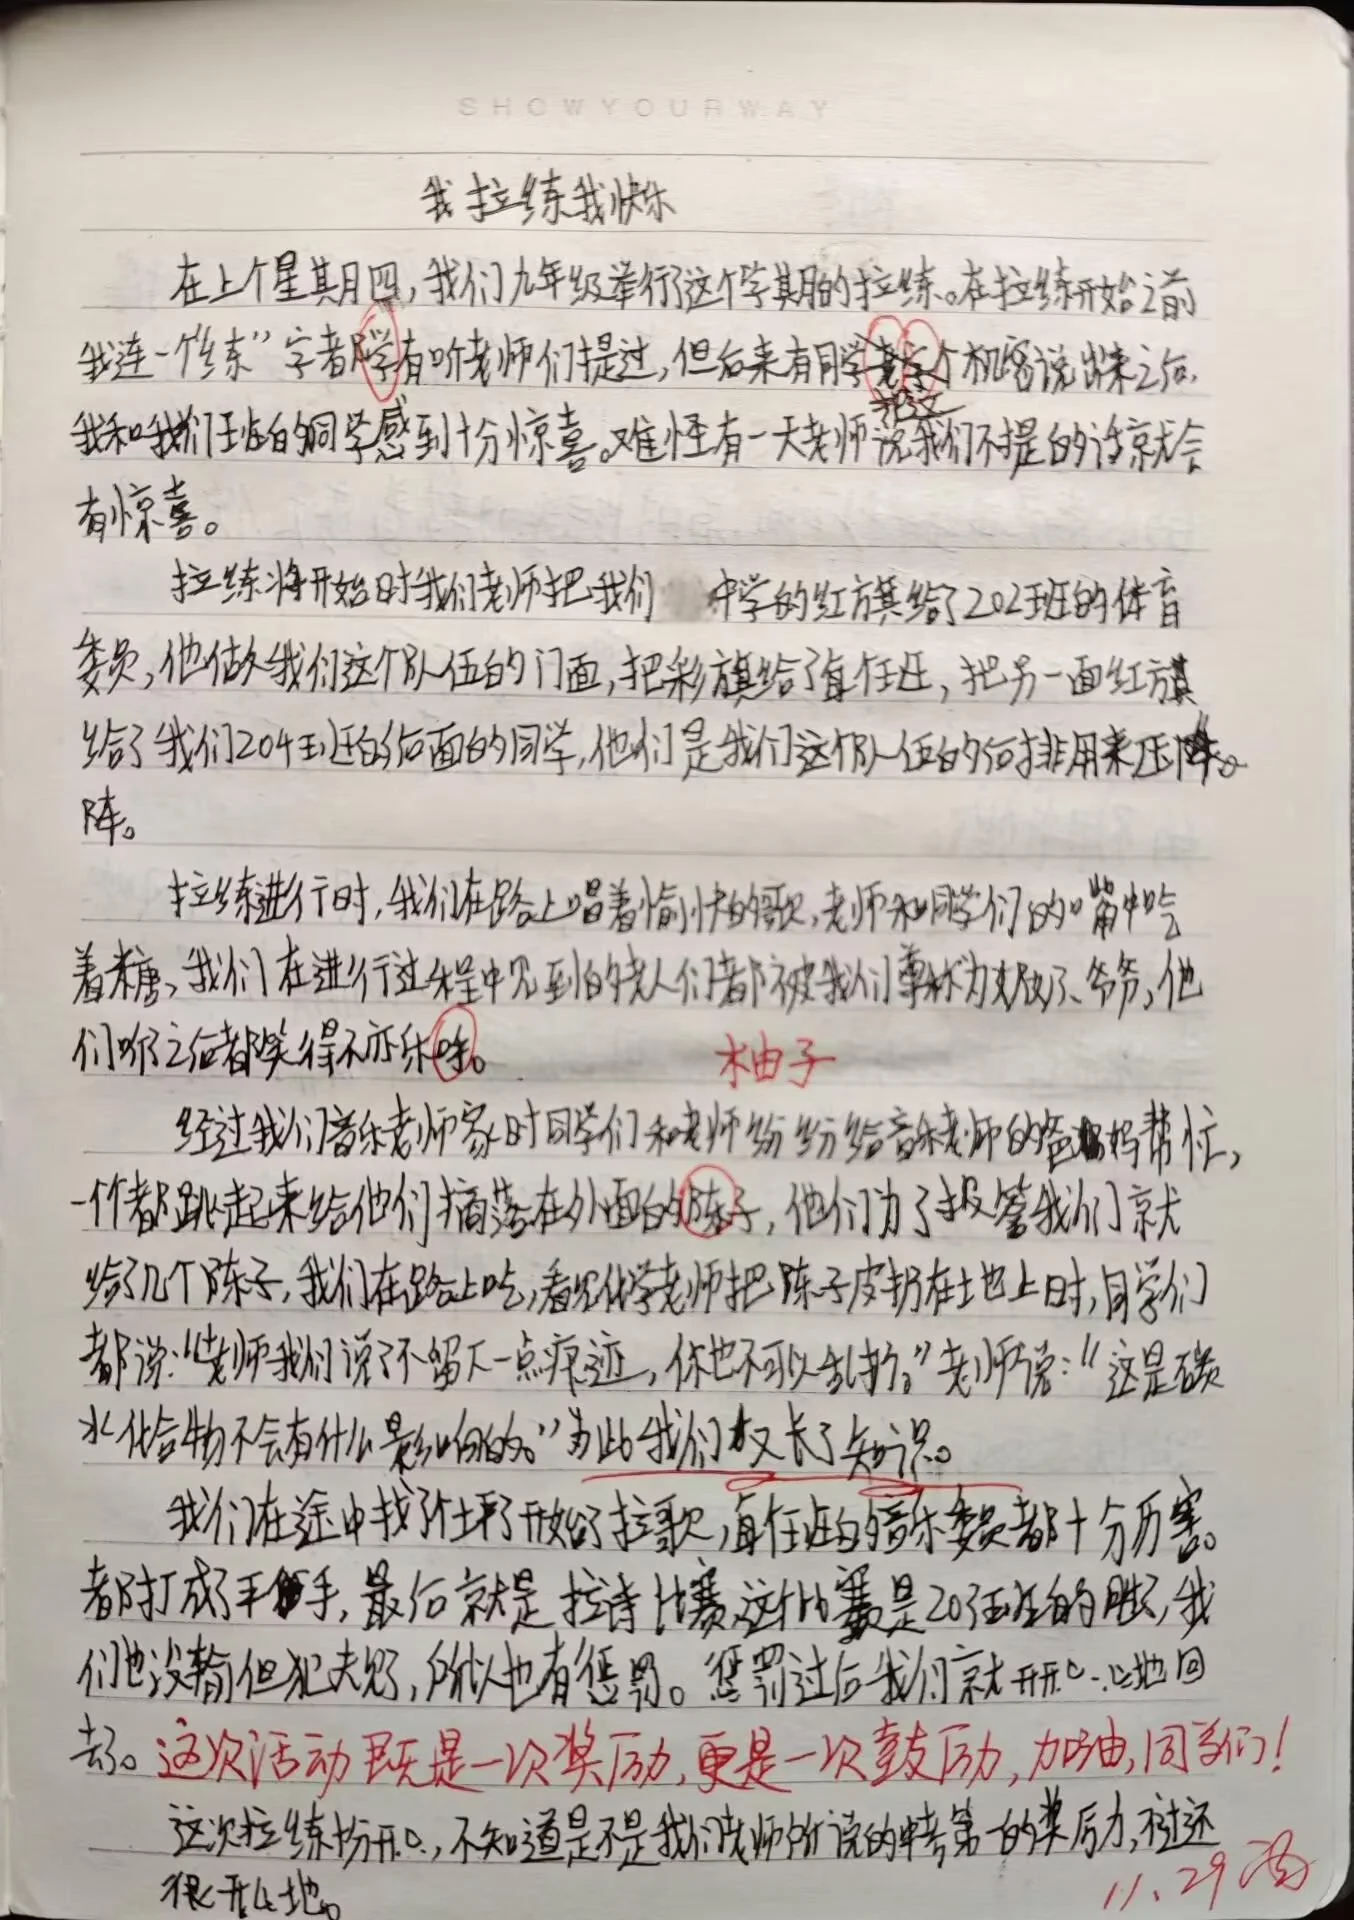 SHOWYOURWAY
我拉练我快乐
在上个星其月四，我们九年级举行了这个学其月的拉练。在拉练开始之前
我连一个“练”字都学有听老师们提过，但后来有同学老字个机密说出来之后，
我和我们班的同学感到十分惊喜。难怪有一天老师说我们不提的话就会
有惊喜。
拉练将开始时我们老师把我们 中学的红旗给了202班的体育
委员，他做为我们这个队伍的门面，把彩旗给了每任班，把另一面红旗
给了我们204班的后面的同学，他们是我们这个队伍的后排用来压
阵。
拉练进行时，我们在路上唱着愉快的歌，老师和同学们的嘴中吃
着糖，我们在进行过程中见到的老人们都被我们尊称为 爷爷，他
们听了之后都笑得不亦乐乎。
柚子
经过我们音乐老师家时同学们和老师纷纷给音乐老师的爸妈帮忙，
一个个都跳起来给他们摘落在外面的陈子，他们为了报答我们就
给了几个陈子，我们在路上吃，看见化学老师把陈子皮扔在土地上时，同学们
都说：“老师我们说了不留下一点痕迹，你也不可以乱扔。”老师说：“这是碳
水化合物不会有什么影响的。”为此我们又长了知识。
我们在途中找了 开始了拉歌，每任班的音乐委员都十分厉害。
都打成了平手，最后就是拉诗比赛，这个比赛是203班的胜了，我
们也没输但犯大规了，所以也有惩罚。惩罚过后我们就开开心心地回
去了。这次活动既是一次奖励，更是一次鼓励，加油，同学们！
这次拉练扮开心，不知道是不是我们老师所说的中考第一的奖励，不过还
很开心地。
11.29